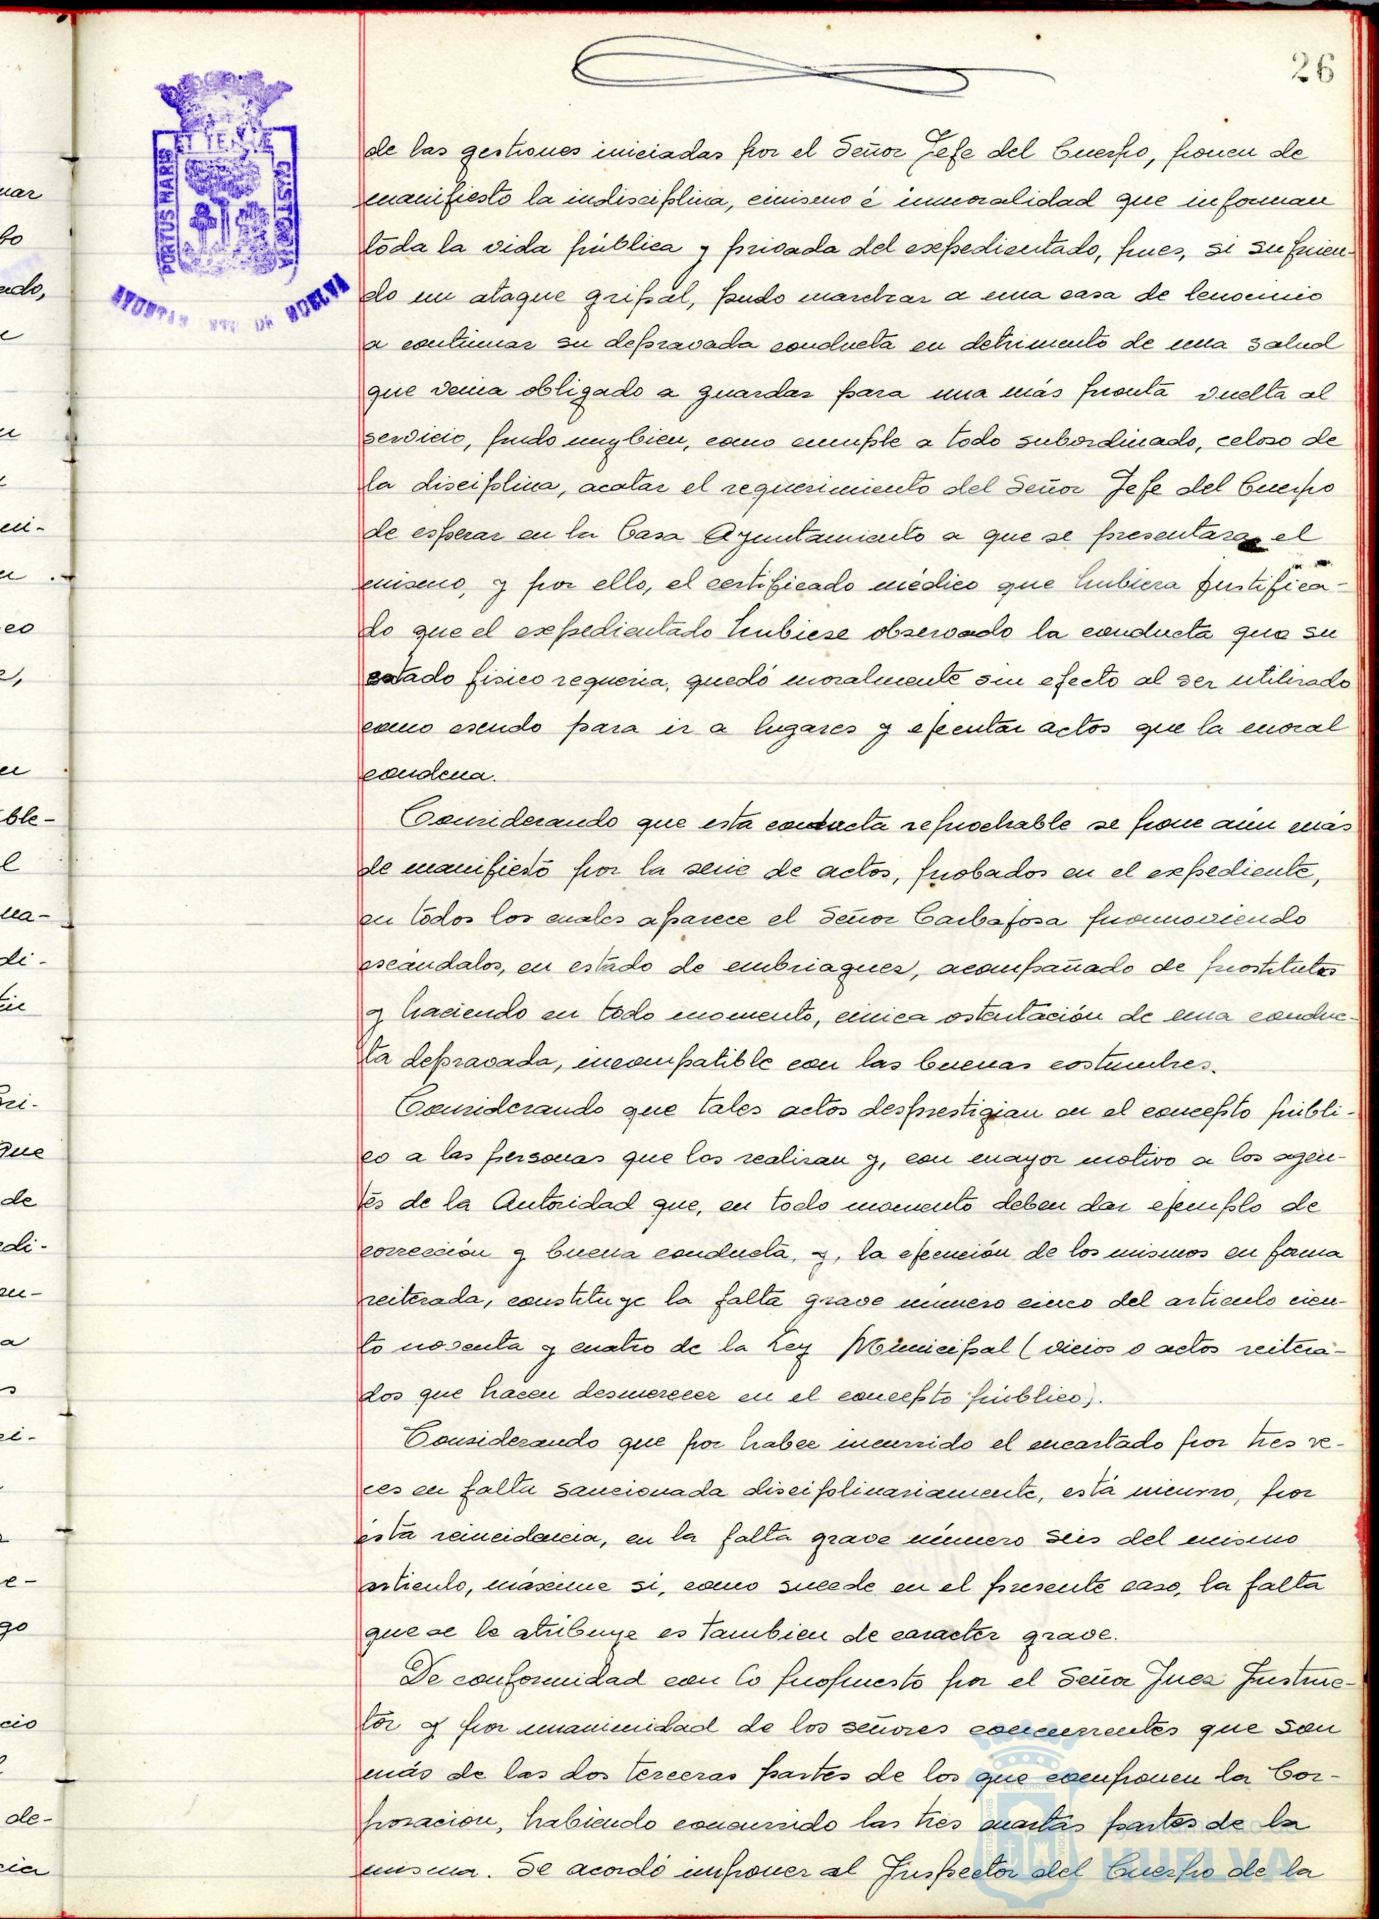 26
PORTUS MARIS ET TERRE CUSTODIA
AYUNTAMIENTO DE HUELVA
de las gestiones iniciadas por el Señor Jefe del Cuerpo, ponen de
manifiesto la indisciplina, cinismo é inmoralidad que informan
toda la vida pública y privada del expedientado, pues, si sufrien-
do un ataque gripal, pudo marchar a una casa de lenocinio
a continuar su depravada conducta en detrimento de una salud
que venia obligado a guardar para una más pronta vuelta al
servicio, pudo muy bien, como cumple a todo subordinado, celoso de
la disciplina, acatar el requerimiento del Señor Jefe del Cuerpo
de esperar en la Casa Ayuntamiento a que se presentara el
mismo, y por ello, el certificado médico que hubiera justifica-
do que el expedientado hubiese observado la conducta que su
estado fisico requeria, quedó moralmente sin efecto al ser utilizado
como escudo para ir a lugares y ejecutar actos que la moral
condena.
Considerando que esta conducta reprochable se pone aún más
de manifiesto por la serie de actos, probados en el expediente,
en todos los cuales aparece el Señor Carbajosa promoviendo
escándalos, en estado de embriaguez, acompañado de prostitutas
y haciendo en todo momento, cinica ostentación de una conduc-
ta depravada, incompatible con las buenas costumbres.
Considerando que tales actos desprestigian en el concepto públi-
co a las personas que los realizan y, con mayor motivo a los agen-
tes de la Autoridad que, en todo momento deben dar ejemplo de
corrección y buena conducta, y, la ejecución de los mismos en forma
reiterada, constituye la falta grave número cinco del articulo cien-
to noventa y cuatro de la Ley Municipal (vicios o actos reitera-
dos que hacen desmerecer en el concepto público).
Considerando que por haber incurrido el encartado por tres ve-
ces en falta sancionada disciplinariamente, está incurso, por
ésta reincidencia, en la falta grave número seis del mismo
articulo, máxime si, como sucede en el presente caso, la falta
que se le atribuye es tambien de caracter grave.
De conformidad con lo propuesto por el Señor Juez Instruc-
tor y por unanimidad de los señores concurrentes que son
más de las dos terceras partes de los que componen la Cor-
poracion, habiendo concurrido las tres cuartas partes de la
misma. Se acordó imponer al Inspector del Cuerpo de la
HUELVA